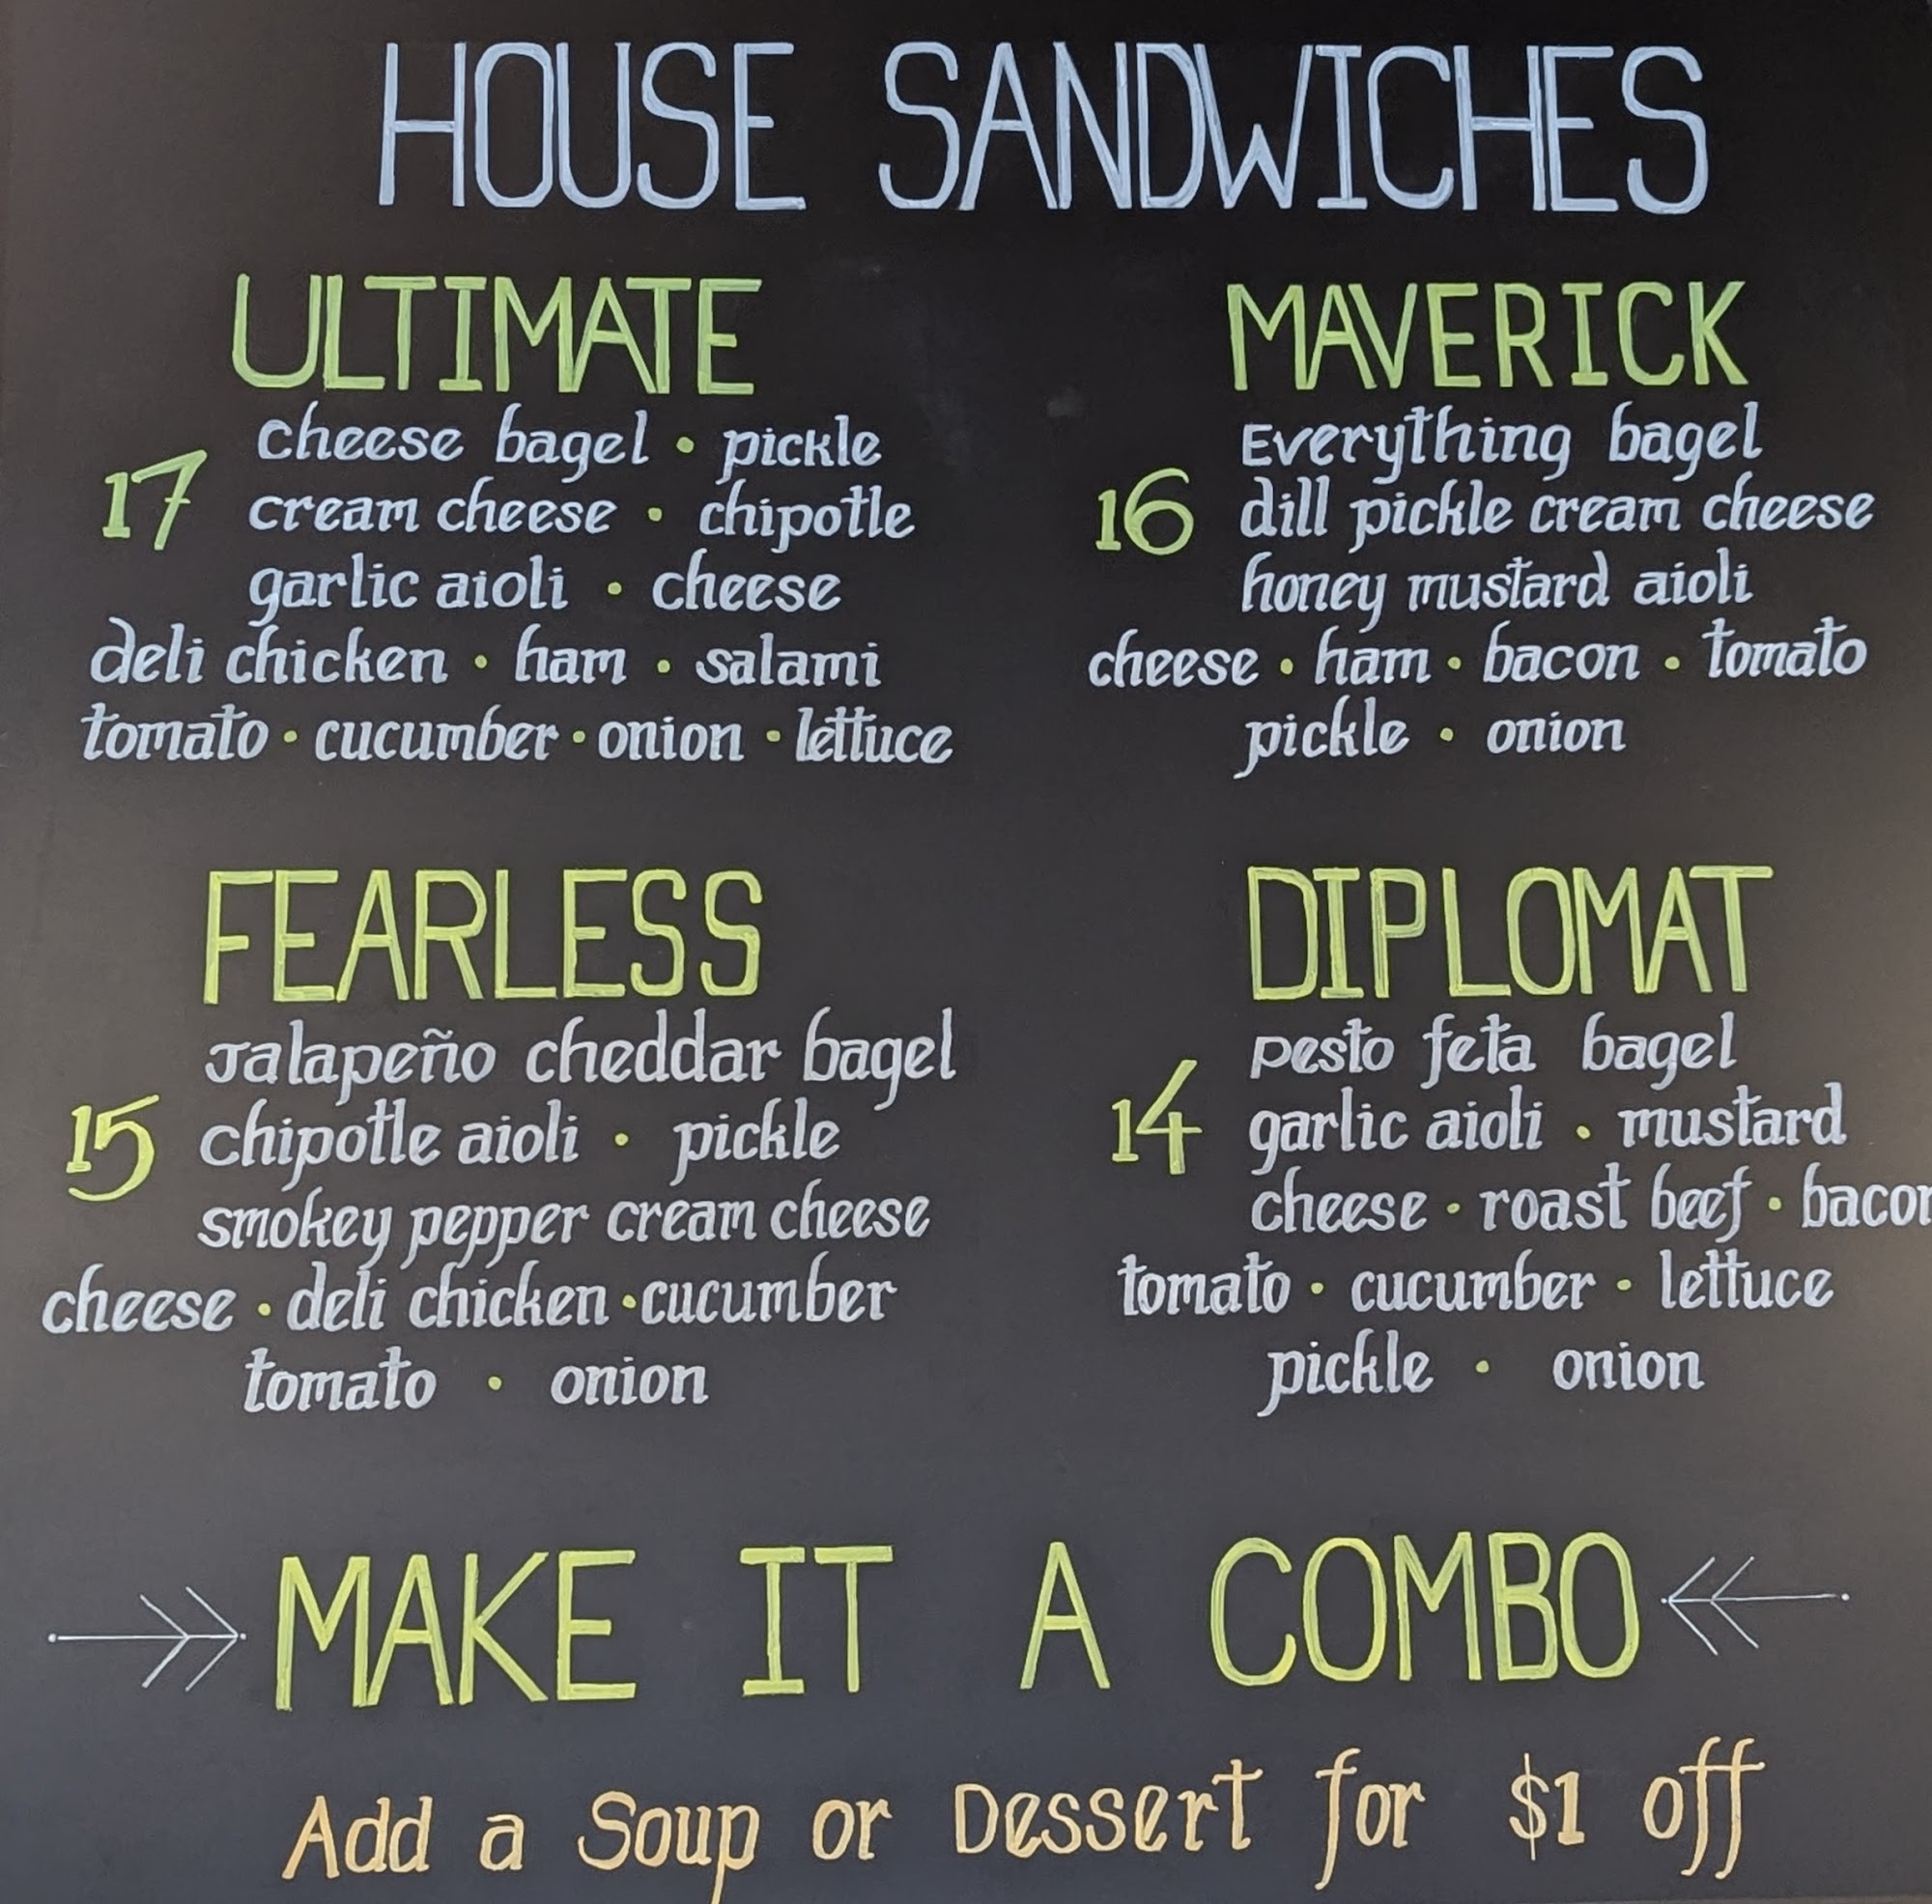 HOUSE SANDWICHES
ULTIMATE
17
cheese bagel • pickle
cream cheese • chipotle
garlic aioli • cheese
deli chicken • ham • salami
tomato • cucumber • onion • lettuce
MAVERICK
16
Everything bagel
dill pickle cream cheese
honey mustard aioli
cheese • ham • bacon • tomato
pickle • onion
FEARLESS
15
Jalapeño cheddar bagel
chipotle aioli • pickle
smokey pepper cream cheese
cheese • deli chicken • cucumber
tomato • onion
DIPLOMAT
14
pesto feta bagel
garlic aioli • mustard
cheese • roast beef • bacon
tomato • cucumber • lettuce
pickle • onion
MAKE IT A COMBO
Add a Soup or Dessert for $1 off